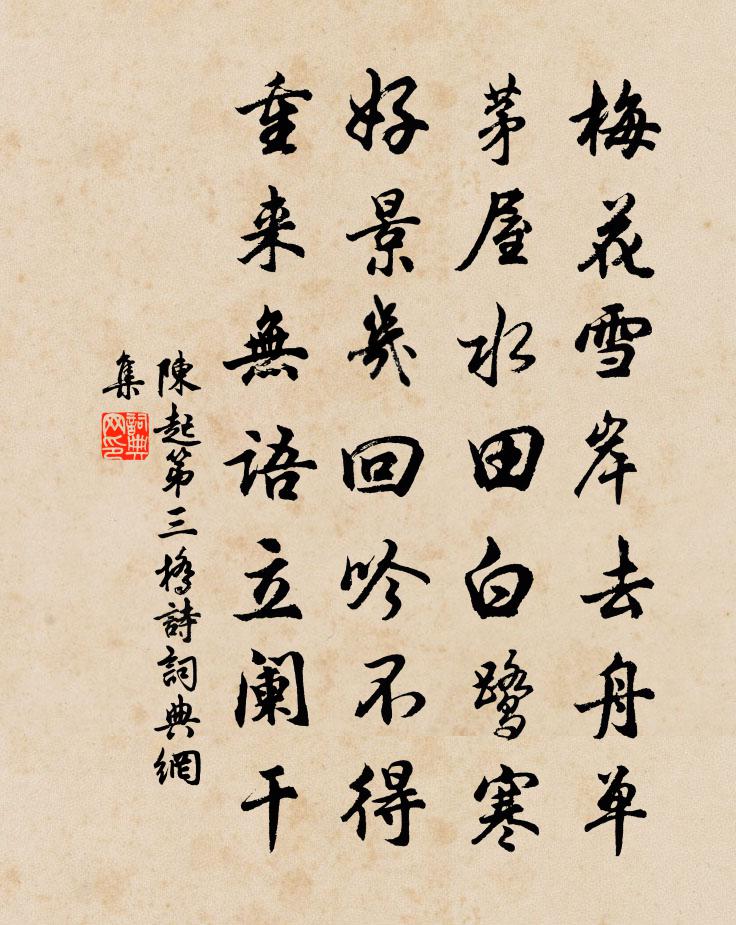 梅花雪岸去舟单
茅屋水田白鹭寒
好景幾回吟不得
重来無語立阑干
陳起第三橋詩詞典網
集
詞典
网印